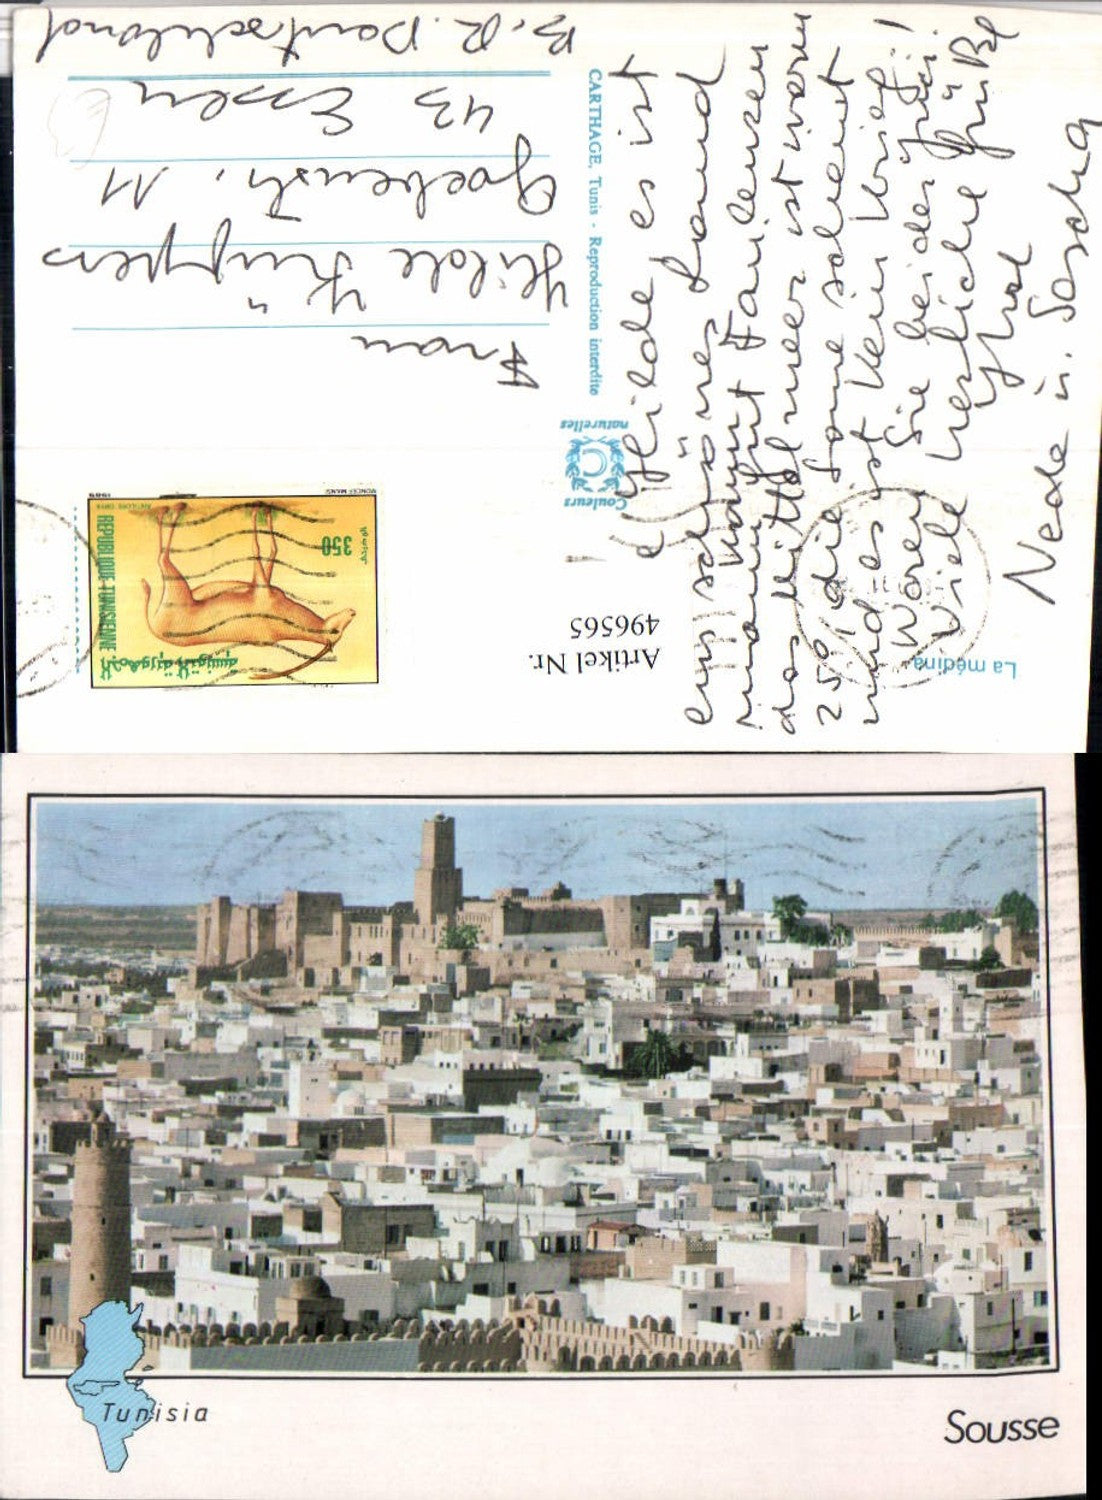 Hilde es ist
ein schönes Land
man kann gut Faulenzen
das Mittelmeer ist warm
25° die Sonne scheint
und es ist kein Krieg!
Wären Sie beide hier!
Viele herzliche Grüße
Nede u. Sascha
CARTHAGE, Tunis - Reproduction interdite
Couleurs
naturelles
La médina
Artikel Nr.
496565
الجمهورية التونسية
REPUBLIQUE TUNISIENNE
350
Frau
Hilde Küppers
Goebenstr. 11
43 Essen
B.R. Deutschland
Tunisia
Sousse